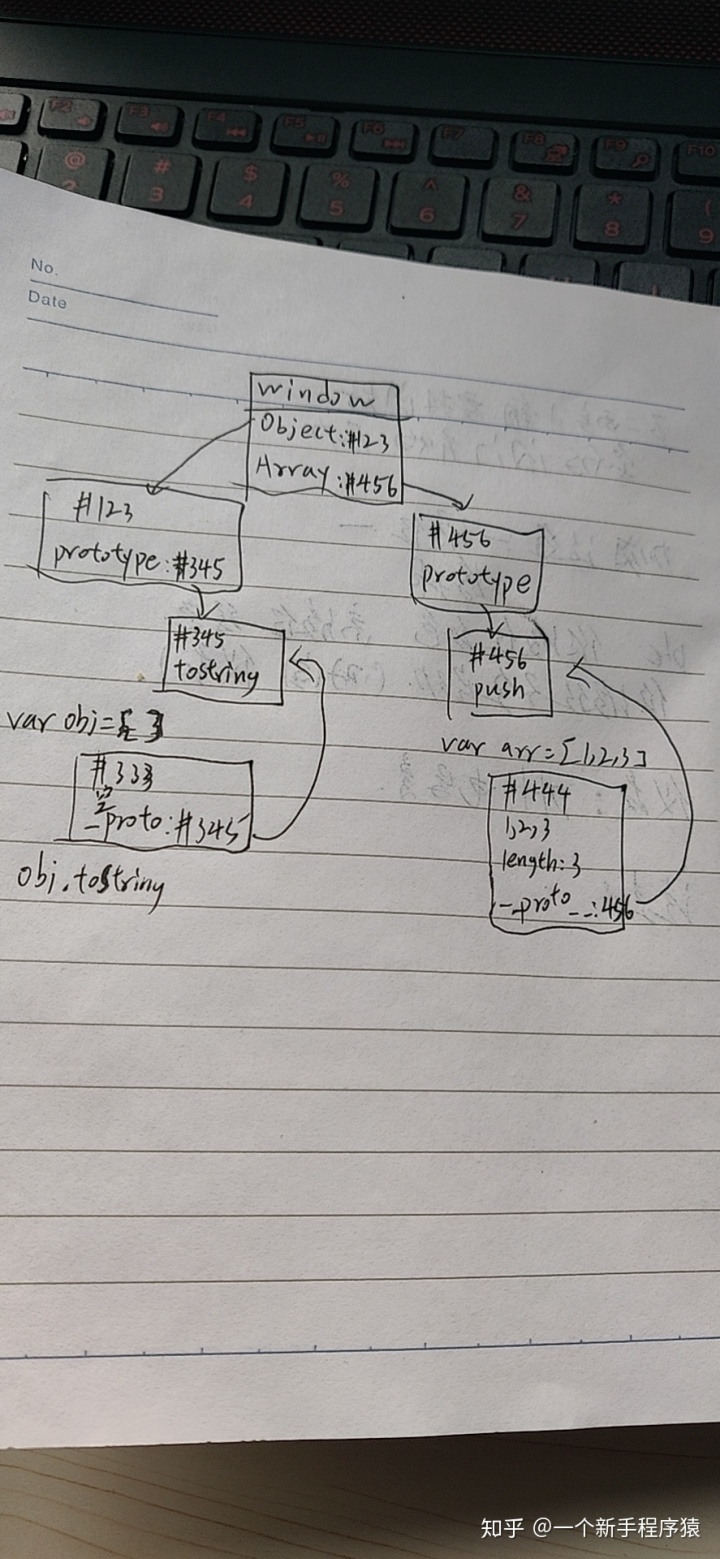 F2
F3
F4
F5
F6
F7
F8
F9
F10
@
# 3
$ 4
% 5
^ 6
& 7
* 8
( 9
No.
Date
window
Object:#123
Array:#456
#123
prototype:#345
#456
prototype
#345
tostring
#456
push
var obj={ }
var arr=[1,2,3]
#333
空
_proto:#345
#444
1,2,3
length:3
__proto__:456
obj.tostring
知乎 @一个新手程序猿